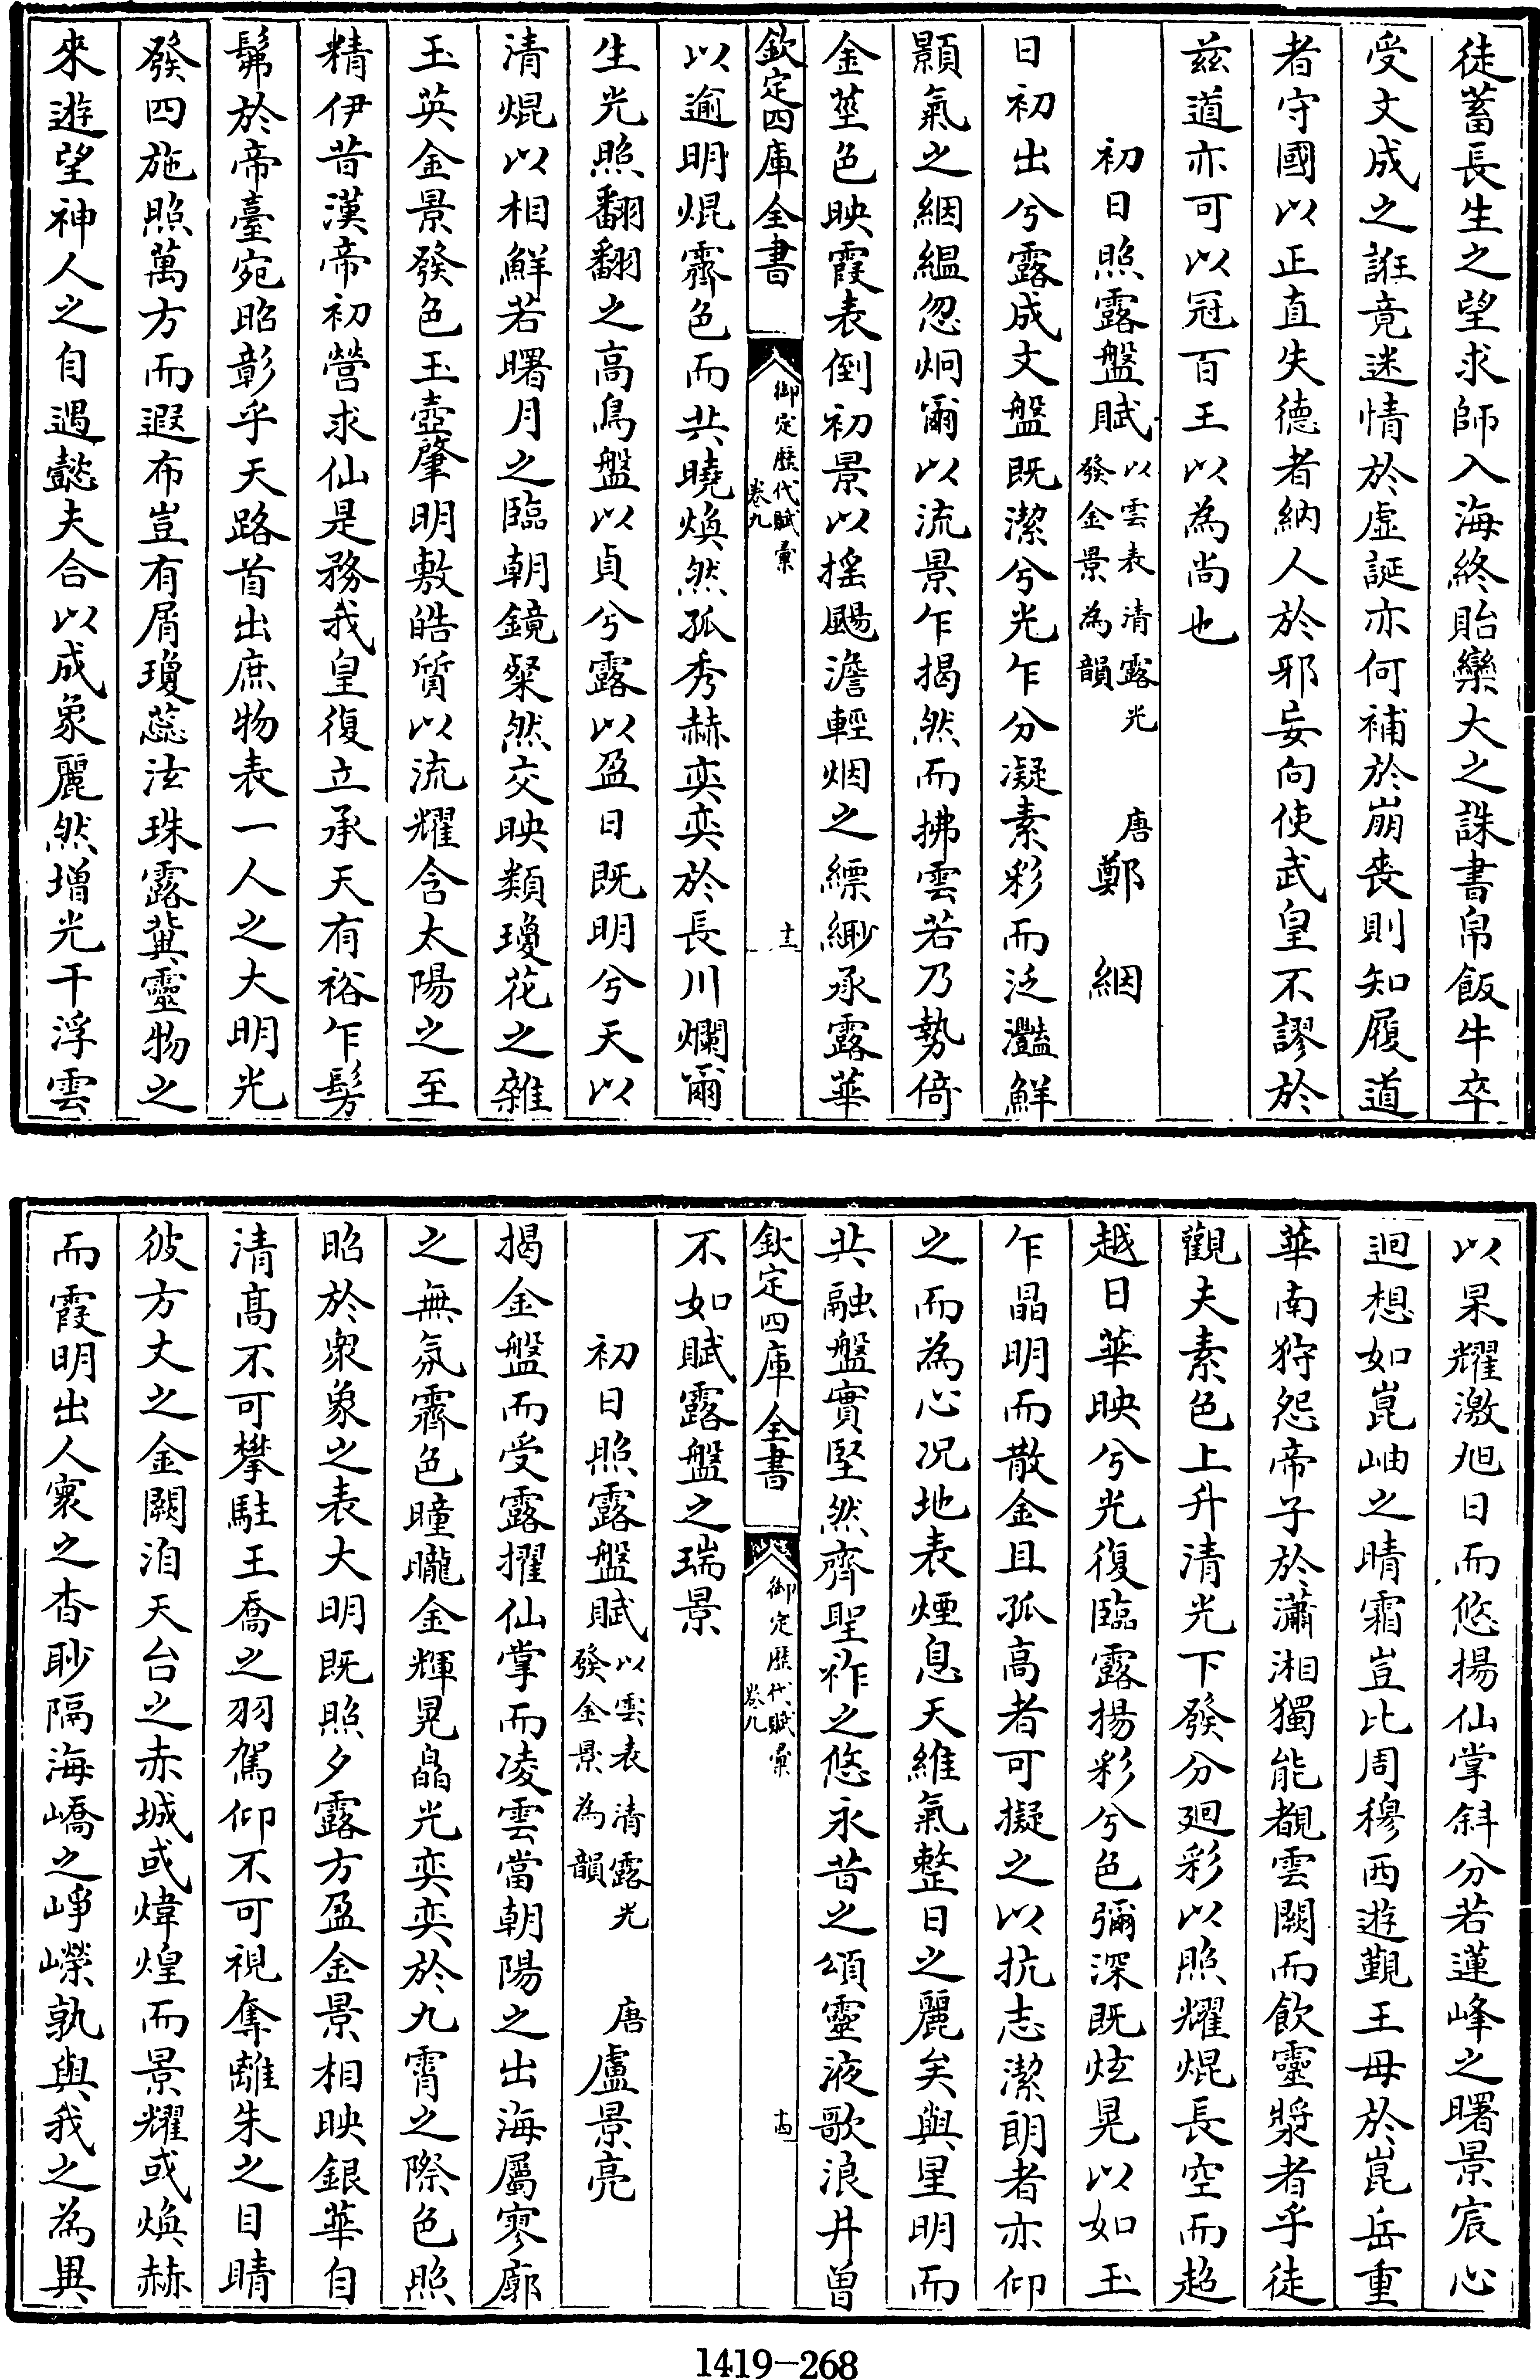 徒蓄長生之望求師入海終貽欒大之誅書帛飯牛卒
受文成之誑竟迷情於虛誕亦何補於崩喪則知履道
者守國以正直失德者納人於邪妄向使武皇不謬於
兹道亦可以冠百王以為尚也
初日照露盤賦以雲表清露光發金景為韻 唐鄭絪
日初出兮露成文盤既潔兮光乍分凝素彩而泛灩鮮
顥氣之絪縕忽炯爾以流景乍揭然而拂雲若乃勢倚
金莖色映霞表倒初景以摇颺澹輕烟之縹緲承露華
欽定四庫全書 御定歷代賦彙 卷九 十三
以逾明焜霽色而共曉煥然孤秀赫奕奕於長川爛爾
生光照翻翻之高鳥盤以貞兮露以盈日既明兮天以
清焜以相鮮若曙月之臨朝鏡粲然交映類瓊花之雜
玉英金景發色玉壺肇明敷皓質以流耀含太陽之至
精伊昔漢帝初營求仙是務我皇復立承天有裕乍髣
髴於帝臺宛昭彰乎天路首出庶物表一人之大明光
發四施照萬方而遐布豈有屑瓊蕊法珠露冀靈物之
來遊望神人之自遇懿夫合以成象麗然增光干浮雲
以杲耀激旭日而悠揚仙掌斜分若蓮峰之曙景宸心
迴想如崑岫之晴霜豈比周穆西遊覲王母於崑岳重
華南狩怨帝子於瀟湘獨能覩雲闕而飲靈漿者乎徒
觀夫素色上升清光下發分迴彩以照耀焜長空而超
越日華映兮光復臨露揚彩兮色彌深既炫晃以如玉
乍晶明而散金且孤高者可擬之以抗志潔朗者亦仰
之而為心况地表煙息天維氣整日之麗矣與星明而
共融盤實堅然齊聖祚之悠永昔之頌靈液歌浪井曽
欽定四庫全書 御定歷代賦彙 卷九 十四
不如賦露盤之瑞景
初日照露盤賦以雲表清露光發金景為韻 唐盧景亮
揭金盤而受露擢仙掌而凌雲當朝陽之出海屬寥廓
之無氛霽色曈曨金輝晃皛光奕奕於九霄之際色照
昭於衆象之表大明既照夕露方盈金景相映銀華自
清高不可攀駐王喬之羽駕仰不可視奪離朱之目睛
彼方丈之金闕洎天台之赤城或煒煌而景耀或煥赫
而霞明出人寰之杳眇隔海嶠之崢嶸孰與我之為異
1419-268